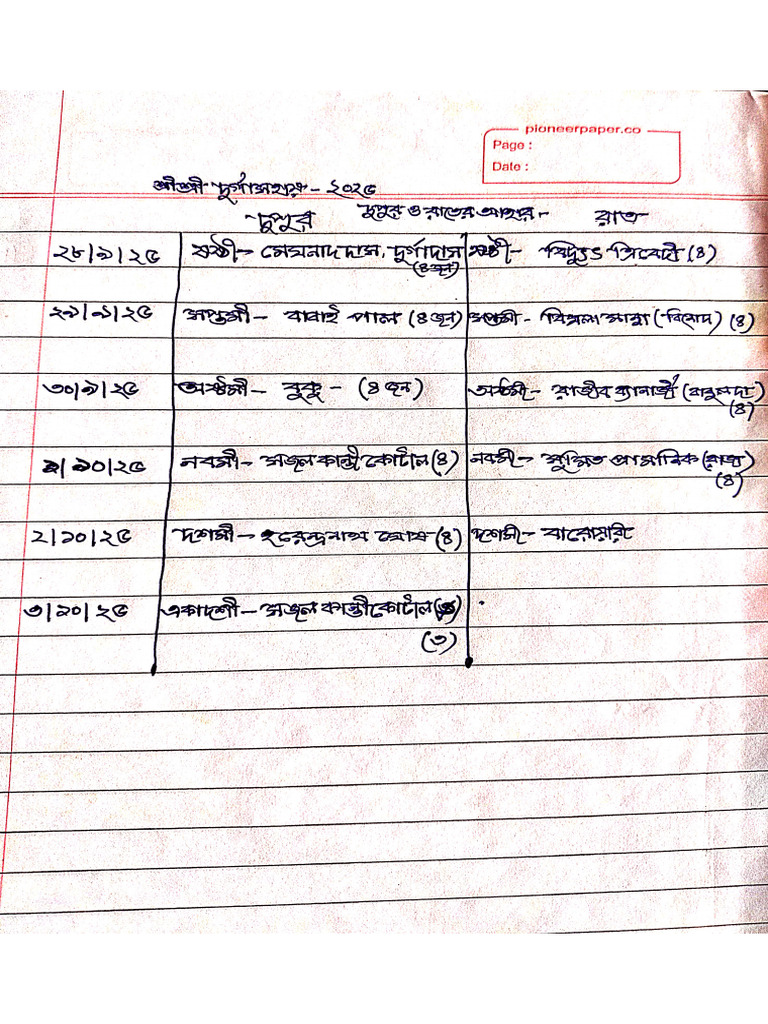 pioneerpaper.co
Page :
Date :
শ্রীশ্রী দুর্গাসহায় - ২০২৫
দুপুর ও রাতের আহার -
দুপুর রাত
২৮/৯/২৫ ষষ্ঠী - মেঘনাদ দাস, দুর্গাদাস ষষ্ঠী - ত্রিবেদী (৪)
(৪ জন)
২৯/৯/২৫ সপ্তমী - বাবাই পাল (৪ জন) সপ্তমী - মান্না (বিনোদ) (৪)
৩০/৯/২৫ অষ্টমী - বুকু - (৪ জন) অষ্টমী - রাজীব ব্যানার্জী (বাবুলদা)
(৪)
১/১০/২৫ নবমী - সজল কান্তী কোটাল (৪) নবমী - সুস্মিত প্রামানিক (রাজ)
(৪)
২/১০/২৫ দশমী - হরেন্দ্রনাথ ঘোষ (৪) দশমী - বারোয়ারি
৩/১০/২৫ একাদশী - সজল কান্তী কোটাল
(৩)